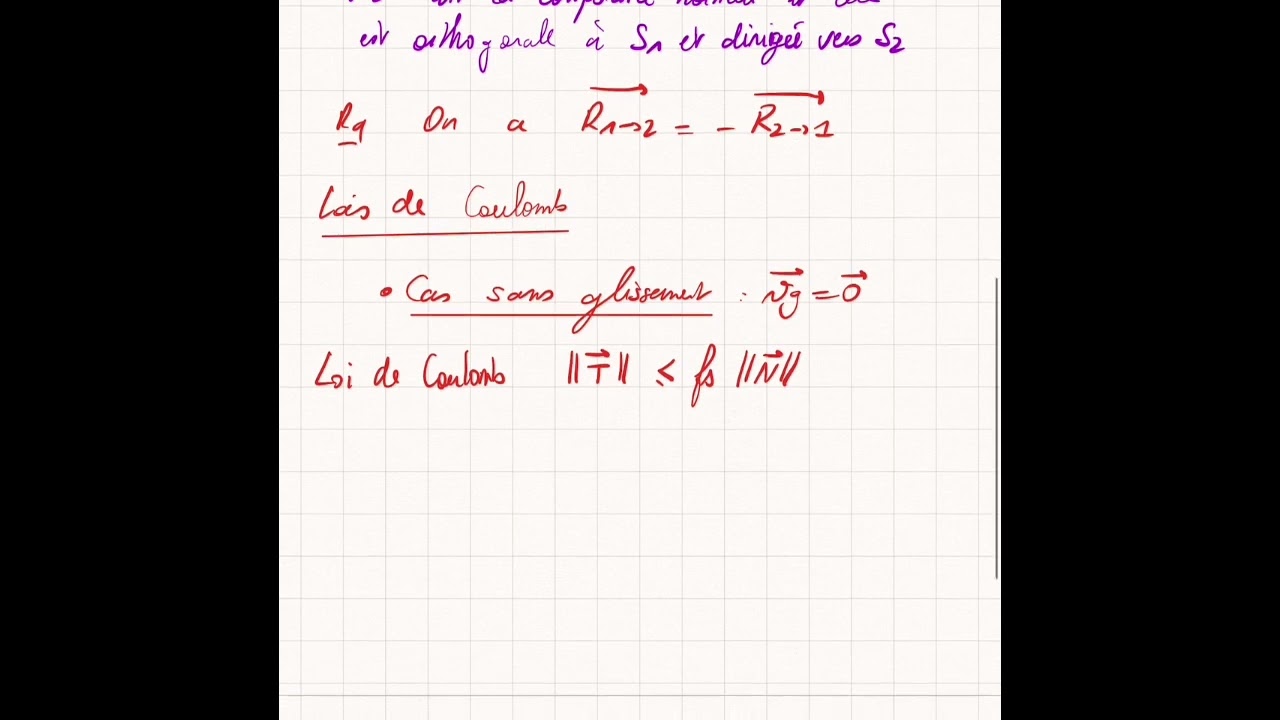 est orthogonale à S1 et dirigée vers S2
Rq On a R1→2 = - R2→1
Lois de Coulomb
• Cas sans glissement : vg = 0
Loi de Coulomb ||T|| ≤ fs ||N||